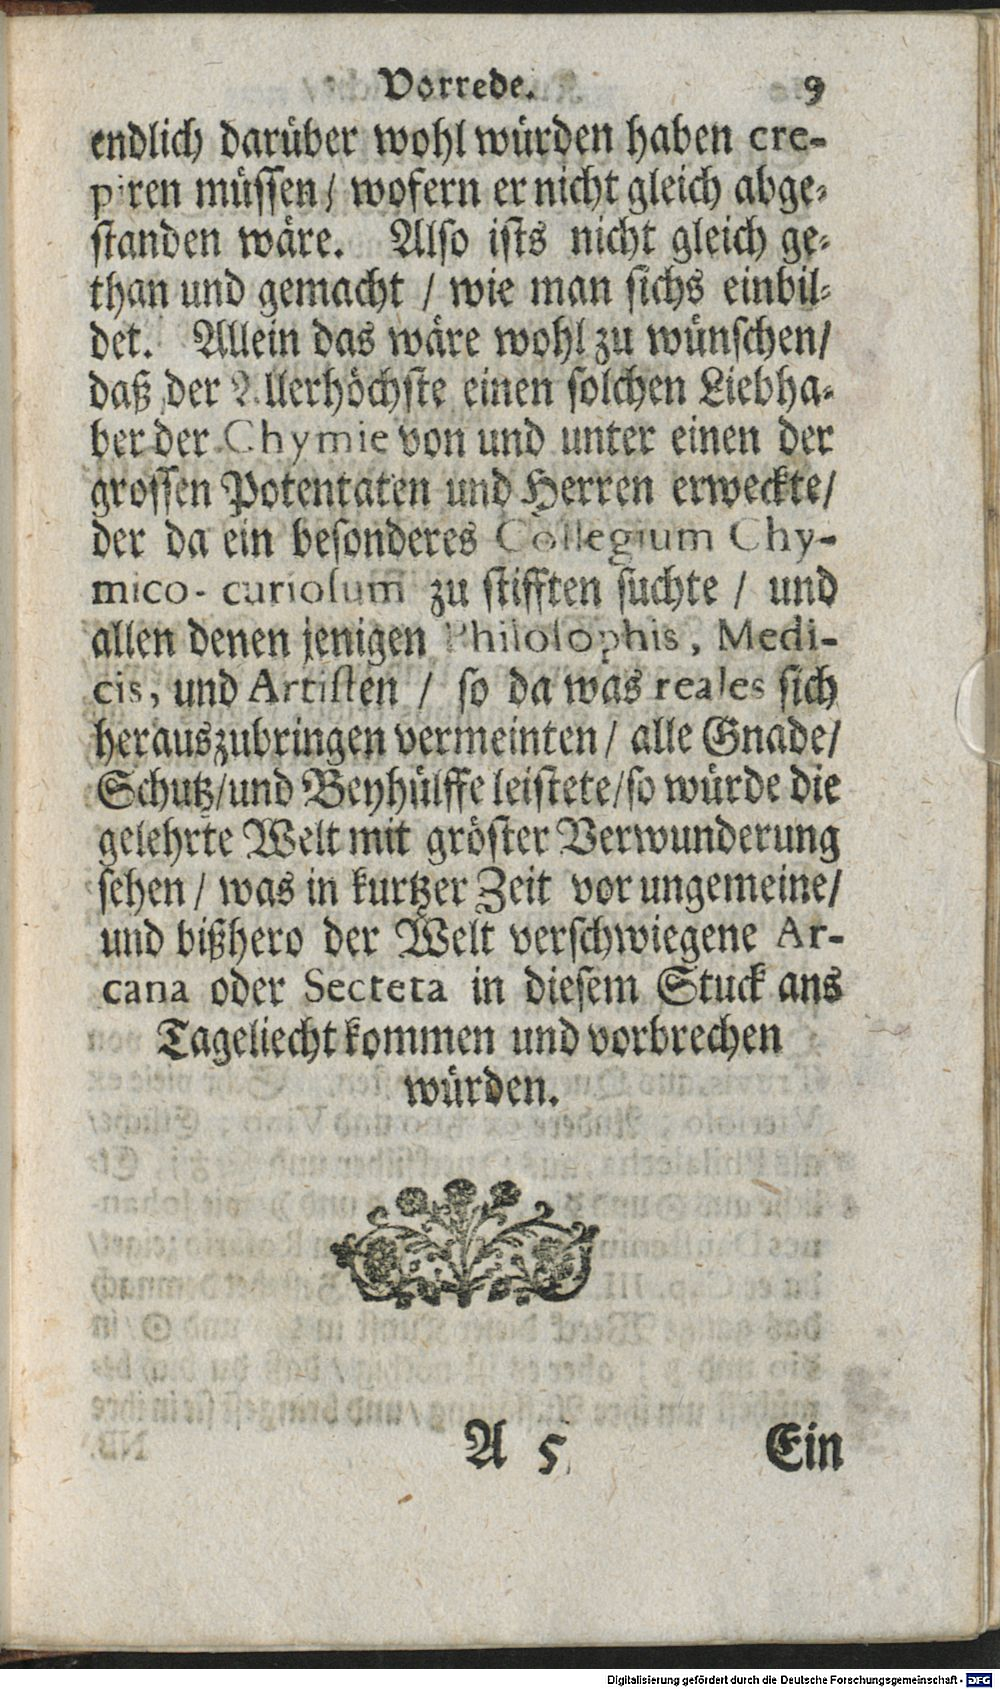 Vorrede. 9
endlich darüber wohl würden haben cre-
piren müssen / wofern er nicht gleich abge-
standen wäre. Also ists nicht gleich ge-
than und gemacht / wie man sichs einbil-
det. Allein das wäre wohl zu wünschen /
daß der Allerhöchste einen solchen Liebha-
ber der Chymie von und unter einen der
grossen Potentaten und Herren erweckte /
der da ein besonderes Collegium Chy-
mico-curiosum zu stifften suchte / und
allen denen jenigen Philosophis, Medi-
cis, und Artisten / so da was reales sich
herauszubringen vermeinten / alle Gnade /
Schutz / und Beyhülffe leistete / so würde die
gelehrte Welt mit gröster Verwunderung
sehen / was in kurtzer Zeit vor ungemeine /
und bißhero der Welt verschwiegene Ar-
cana oder Secteta in diesem Stuck ans
Tageliecht kommen und vorbrechen
würden.
A 5 Ein
Digitalisierung gefördert durch die Deutsche Forschungsgemeinschaft - DFG